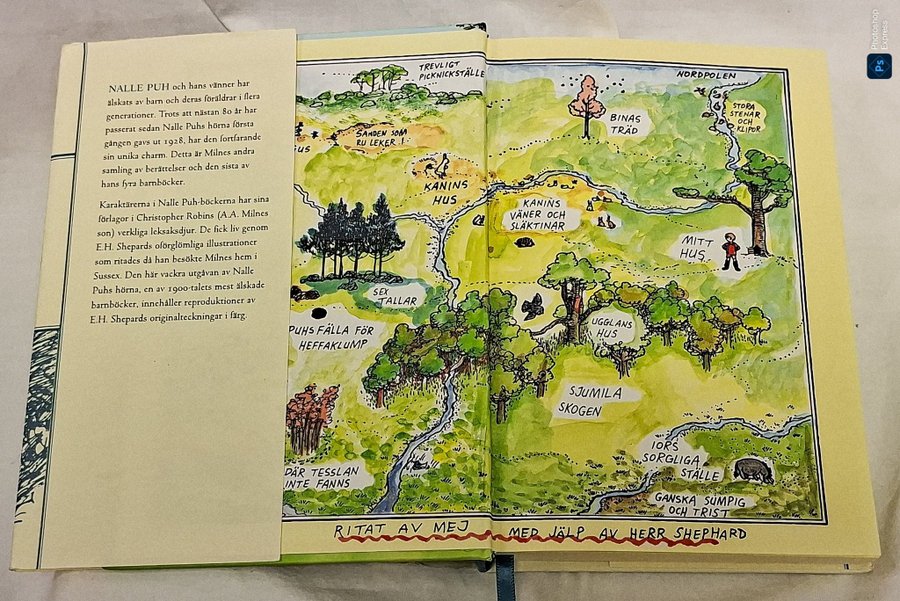 NALLE PUH och hans vänner har
älskats av barn och deras föräldrar i flera
generationer. Trots att nästan 80 år har
passerat sedan Nalle Puhs hörna första
gången gavs ut 1928, har den fortfarande
sin unika charm. Detta är Milnes andra
samling av berättelser och den sista av
hans fyra barnböcker.
Karaktärerna i Nalle Puh-böckerna har sina
förlagor i Christopher Robins (A.A. Milnes
son) verkliga leksaksdjur. De fick liv genom
E.H. Shepards oförglömliga illustrationer
som ritades då han besökte Milnes hem i
Sussex. Den här vackra utgåvan av Nalle
Puhs hörna, en av 1900-talets mest älskade
barnböcker, innehåller reproduktioner av
E.H. Shepards originalteckningar i färg.
TREVLIGT
PICKNICKSTÄLLE
SANDEN SOM
RU LEKER I
US
KANINS
HUS
SEX
TALLAR
PUHS FÄLLA FÖR
HEFFAKLUMP
DÄR TESSLAN
INTE FANNS
NORDPOLEN
STORA
STENAR
OCH
KLIPOR
BINAS
TRÄD
KANINS
VÄNER OCH
SLÄKTINAR
MITT
HUS
UGGLANS
HUS
SJUMILA
SKOGEN
IORS
SORGLIGA
STÄLLE
GANSKA SUMPIG
OCH TRIST
RITAT AV MEJ MED JÄLP AV HERR SHEPHARD
Photoshop
Express
Ps